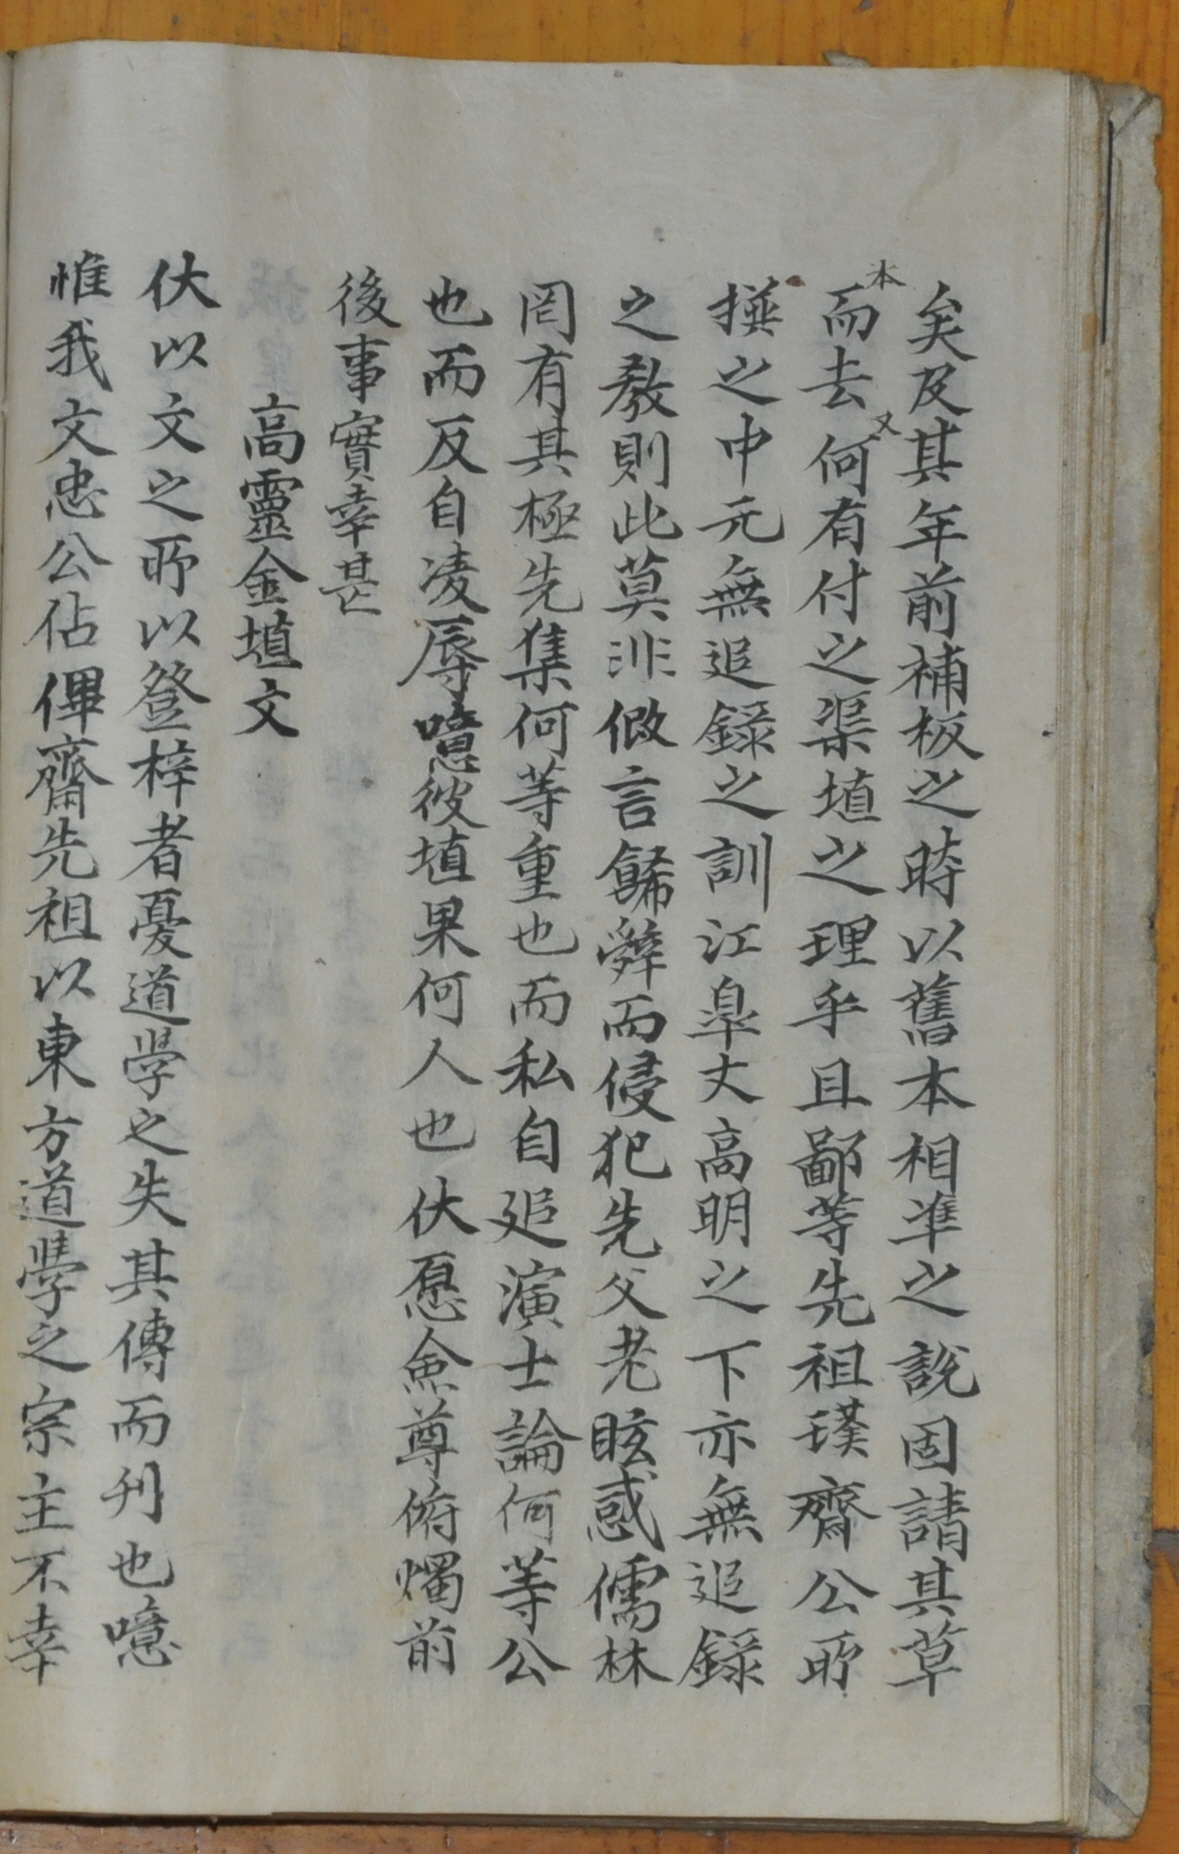 矣及其年前補板之時以舊本相準之說固請其草
本而去又何有付之渠埴之理乎且鄙等先祖瑾齋公所
撰之中元無追錄之訓江皐丈高明之下亦無追錄
之教則此莫非做言餙辭而侵犯先父老眩惑儒林
罔有其極先集何等重也而私自追演士論何等公
也而反自凌辱噫彼埴果何人也伏愿僉尊俯燭前
後事實幸甚
高靈金埴文
伏以文之所以登梓者憂道學之失其傳而刊也噫
惟我文忠公佔畢齋先祖以東方道學之宗主不幸